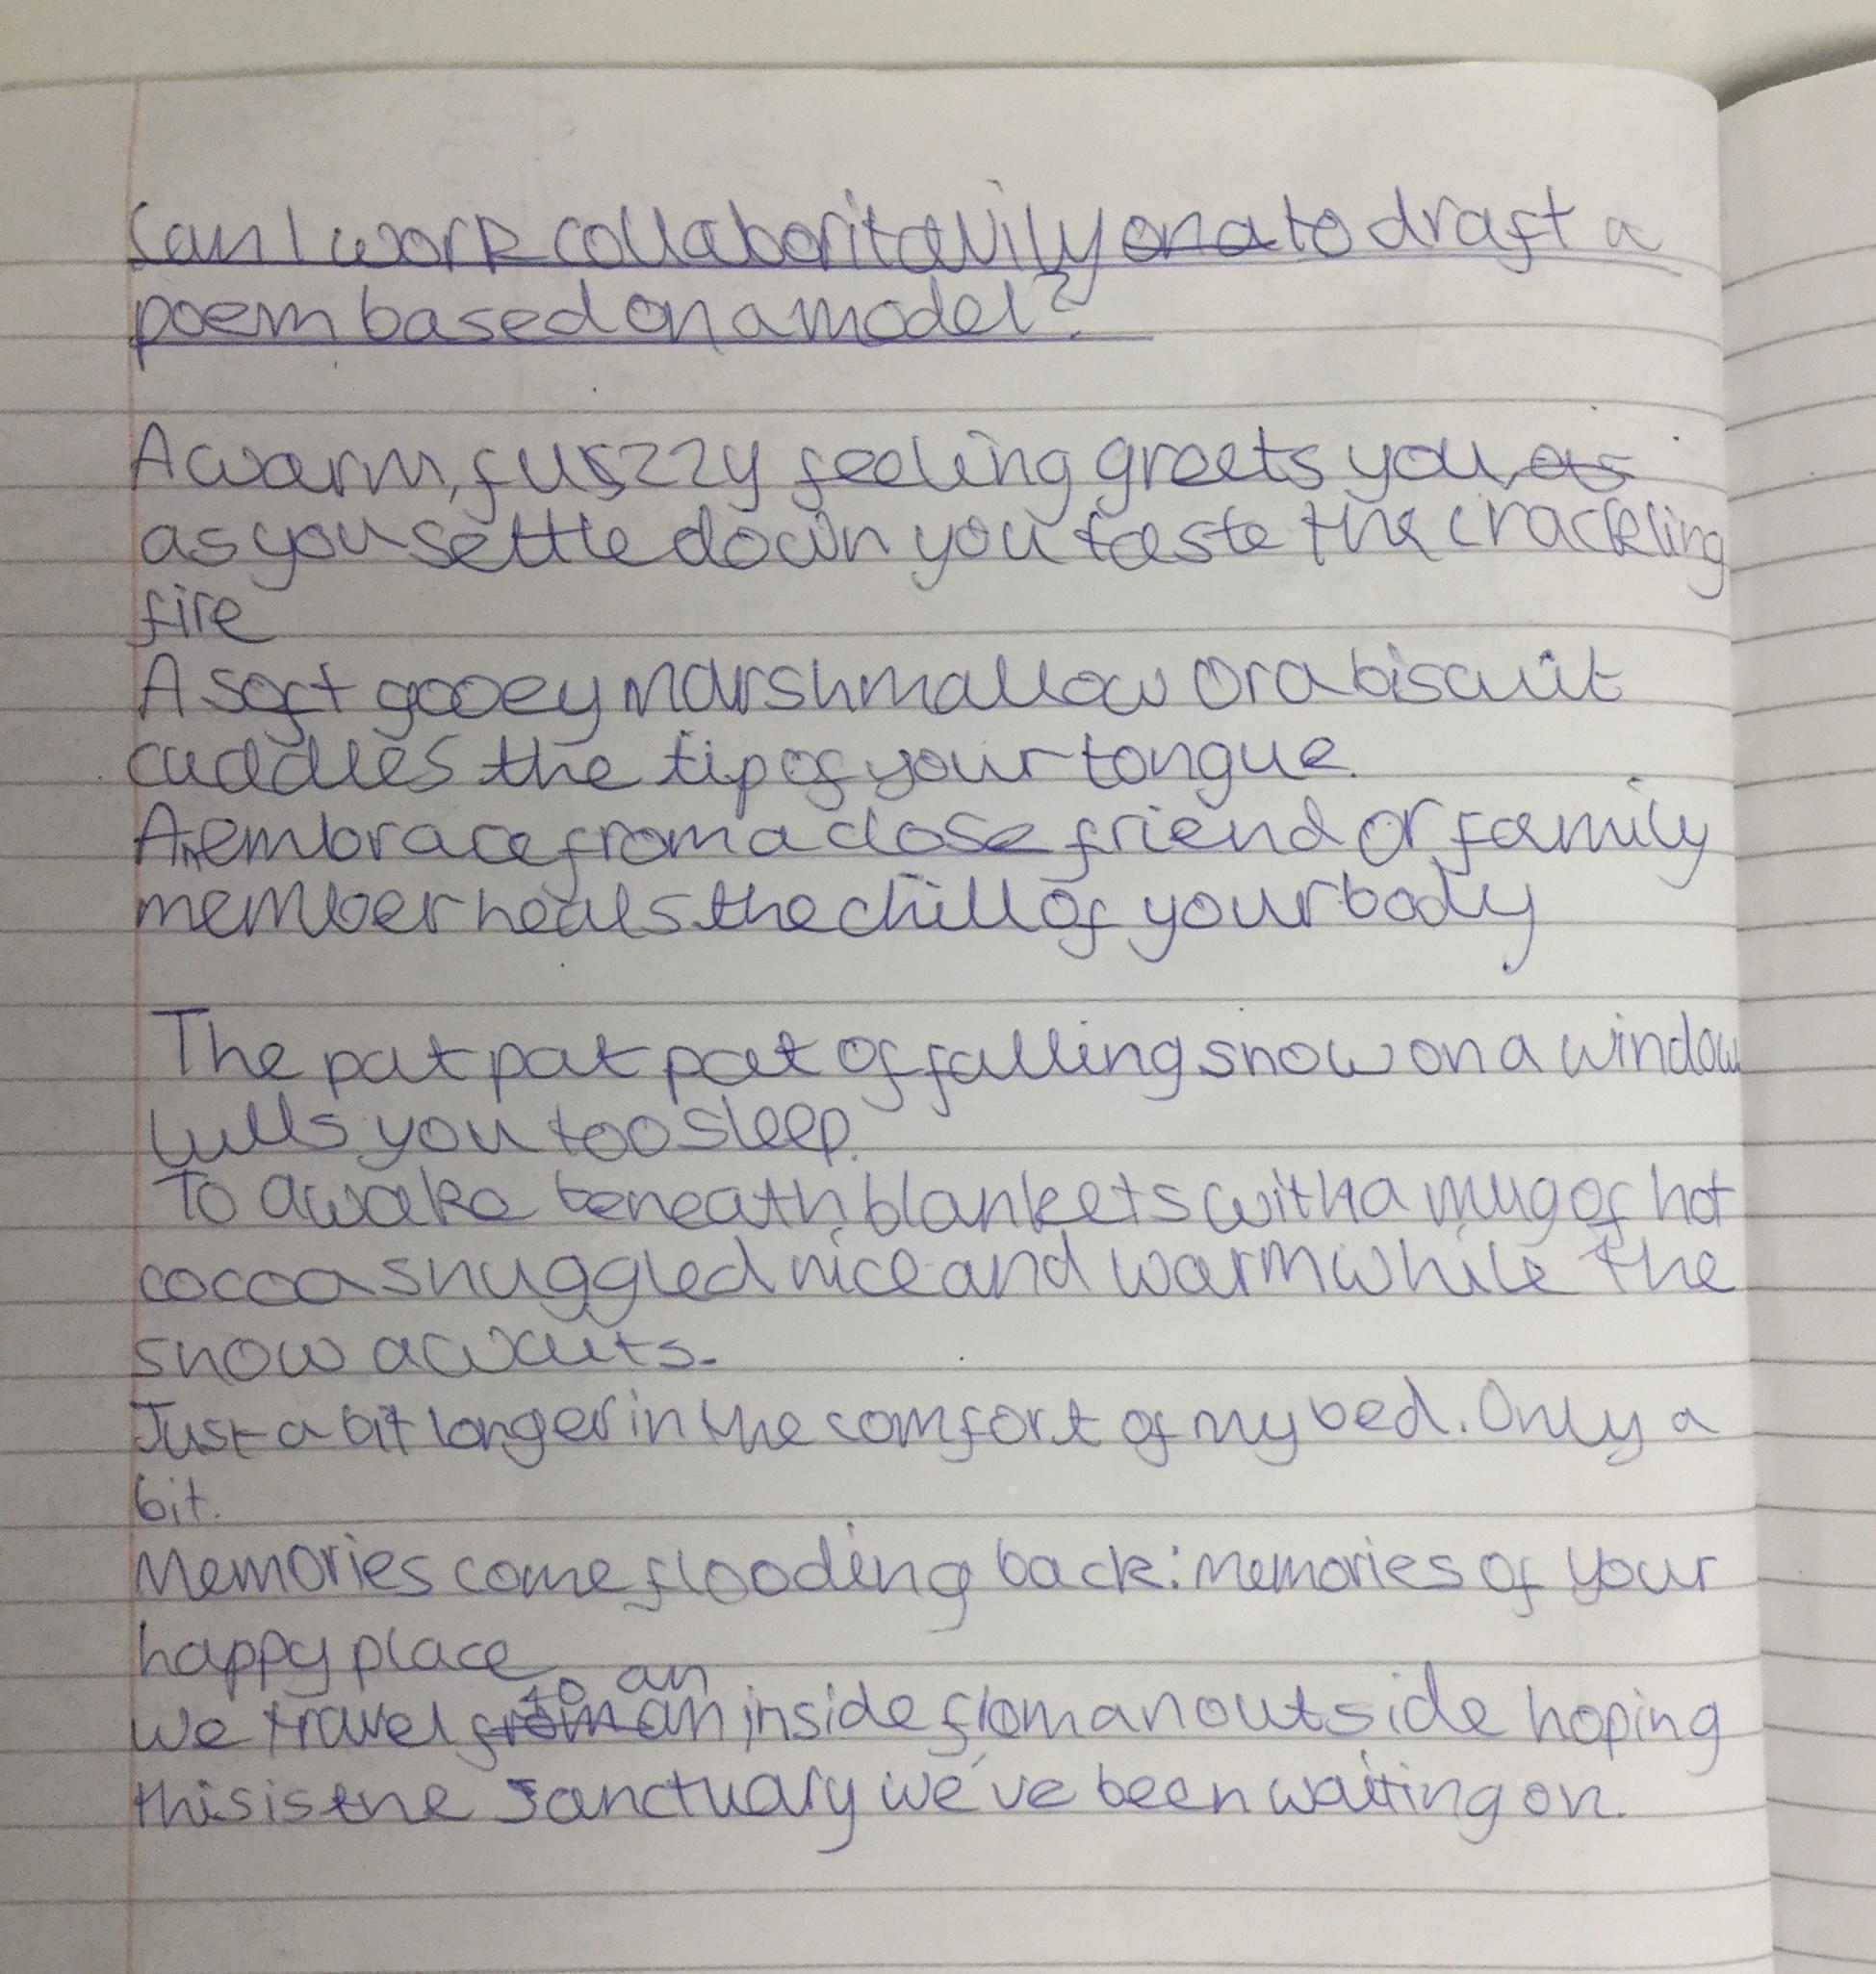 Can I work collaboritavily on a to draft a
poem based on a model?
A warm, fuszzy feeling greets you, as
as you settle down you taste the crackling
fire
A soft gooey marshmallow or a biscuit
cuddles the tip of your tongue.
An embrace from a close friend or family
member heals the chill of your body
The pat pat pat of falling snow on a window
lulls you too sleep.
To awake beneath blankets with a mug of hot
cocoa snuggled nice and warm while the
snow awaits.
Just a bit longer in the comfort of my bed. Only a
bit.
Memories come flooding back: memories of your
happy place
to an
We travel from an inside from an outside hoping
this is the sanctuary we've been waiting on.